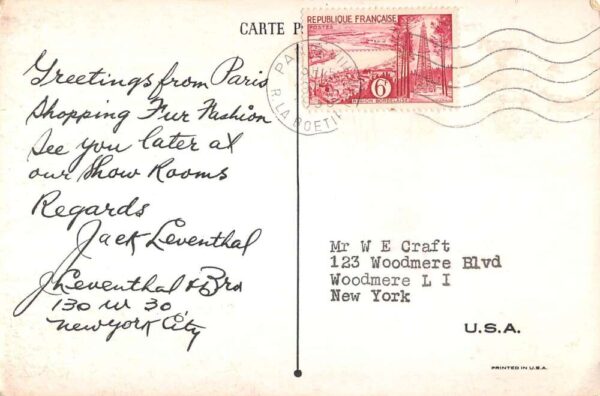 CARTE P
REPUBLIQUE FRANÇAISE
POSTES
6F
REGION BORDELAISE
PARIS VIII
R. LA BOETI
Greetings from Paris
Shopping Fur Fashion
See you later at
our Show Rooms
Regards
Jack Leventhal
J Leventhal & Bro
130 W 30
New York City
Mr W E Craft
123 Woodmere Blvd
Woodmere L I
New York
U.S.A.
PRINTED IN U.S.A.